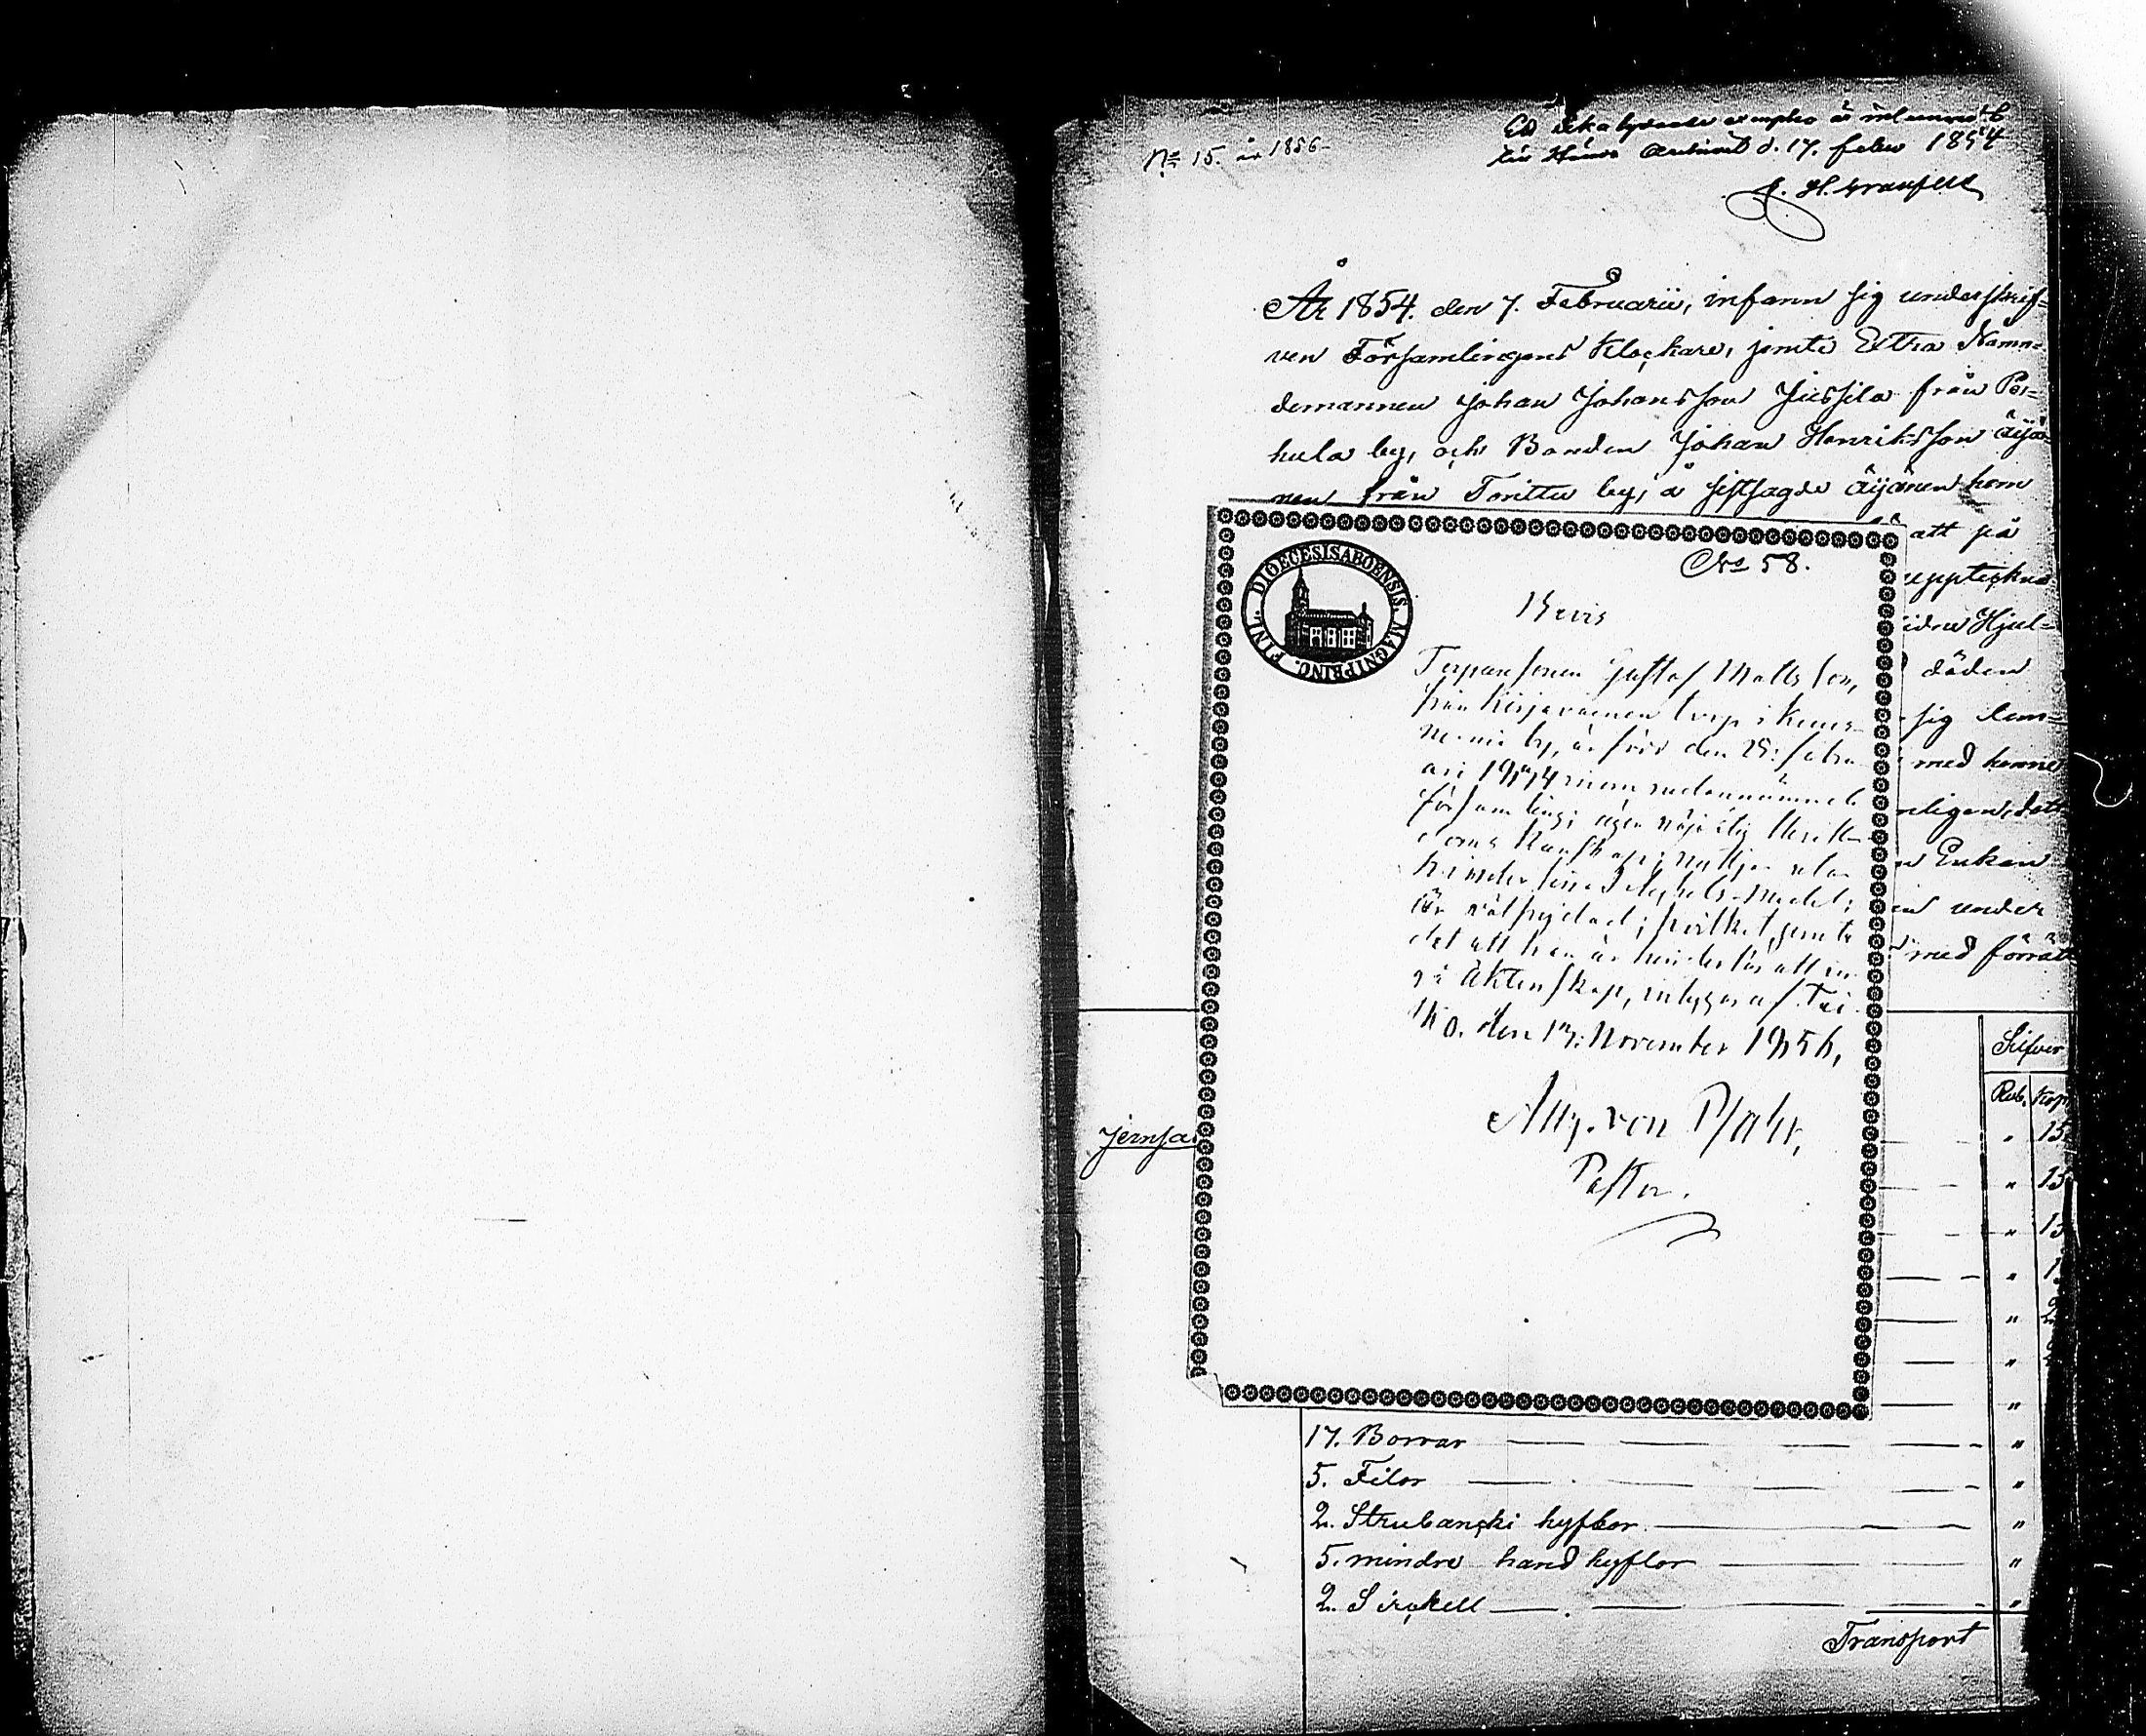 No 15. år 1856-
Ed lika lydande exempla är inlemnadt
till Härads Archivet d. 17. febru 1854
J. H. Granfelt
År 1854. den 7. Februarii, infann sig underskrif=
ven Församlingens Klockare, jemte Extra Nämn=
demannen Johan Johansson Jussila från Poi=
kula by, och Bonden Johan Henriksson Äijä=
nen från Torittu by, å sistsagde Äijänen hem
att på
uppteckna
Hjul=
döden
sig lem=
med henne
neligen, det
n Enkan
under
med förrät
No 58.
DIOECESIS ABOENSIS. MAGNI PRINC. FINL.
Bevis
Torparesonen Gustaf Mattsson,
från Kirjavainen torp i
by, är född den 25. Febru
ari
församling; äger nöjaktig Christen
doms Kunskap; nyttjar utan
hinder sine Salighets-Medel;
är välfrejdad; hvilket, jemte
det att han är hinderlös att in
gå Äktenskap, intygas af. Tai
. den 13. November 1856,
Aug. von Pfaler,
Pastor.
Silfver
Rub. Kop
Jernsa
" 15
" 15
" 15
"
"
"
"
17. Borrar "
5. Filor "
2. Strubancki hyflor "
5. mindre hand hyflor "
2. Sirckell "
Transport